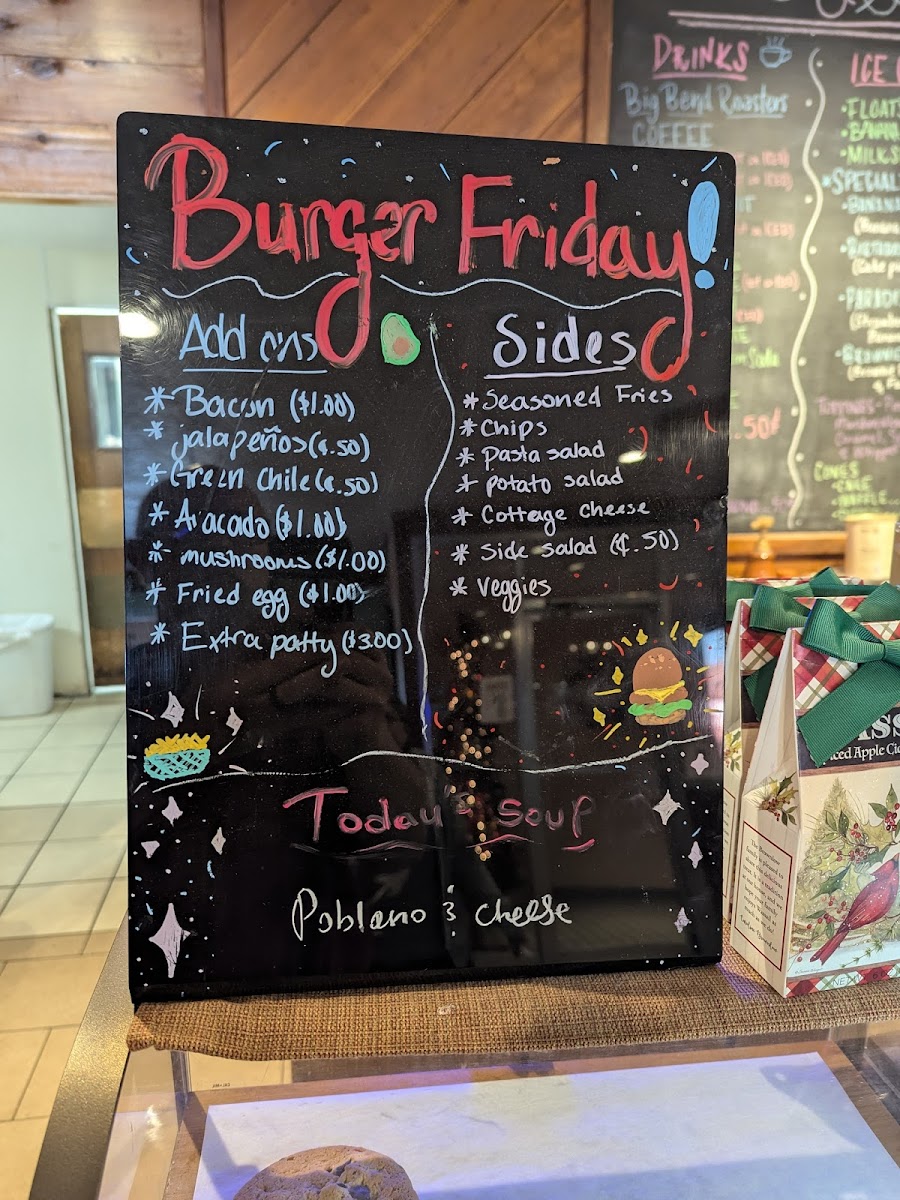 Burger Friday!
Add ons
* Bacon ($1.00)
* jalapeños (¢.50)
* Green Chile (¢.50)
* Avacado ($1.00)
* mushrooms ($1.00)
* Fried egg ($1.00)
* Extra patty ($3.00)
Sides
* Seasoned Fries
* Chips
* Pasta salad
* potato salad
* Cottage Cheese
* Side salad (¢.50)
* Veggies
Today's soup
Poblano & cheese
DRINKS
Big Bend Roasters
COFFEE
ICE
FLOATS
MILKS
SPECIAL
CONES